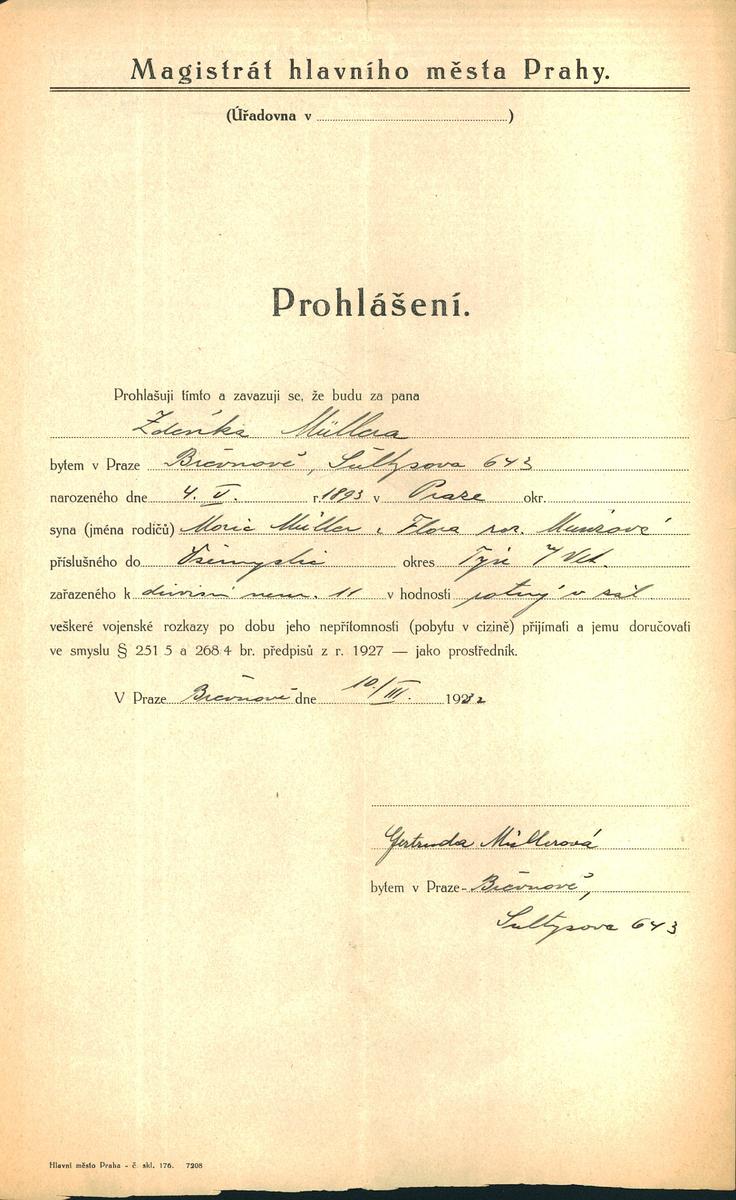 Magistrát hlavního města Prahy.
(Úřadovna v ........................)
Prohlášení.
Prohlašuji tímto a zavazuji se, že budu za pana
Zdeňka Müllera
bytem v Praze Břevnově, Šultysova 643
narozeného dne 4. V. r. 1893 v Praze okr.
syna (jména rodičů) Moric Müller a Flora roz.
příslušného do Všemyslic okres Týn n/Vlt.
zařazeného k divisní nem. 11 v hodnosti rotný v zál
veškeré vojenské rozkazy po dobu jeho nepřítomnosti (pobytu v cizině) přijímati a jemu doručovati
ve smyslu § 251 5 a 268 4 br. předpisů z r. 1927 — jako prostředník.
V Praze Břevnově dne 10/III. 1932
Gertruda Müllerová
bytem v Praze-Břevnově,
Šultysova 643
Hlavní město Praha - č. skl. 176. 7208